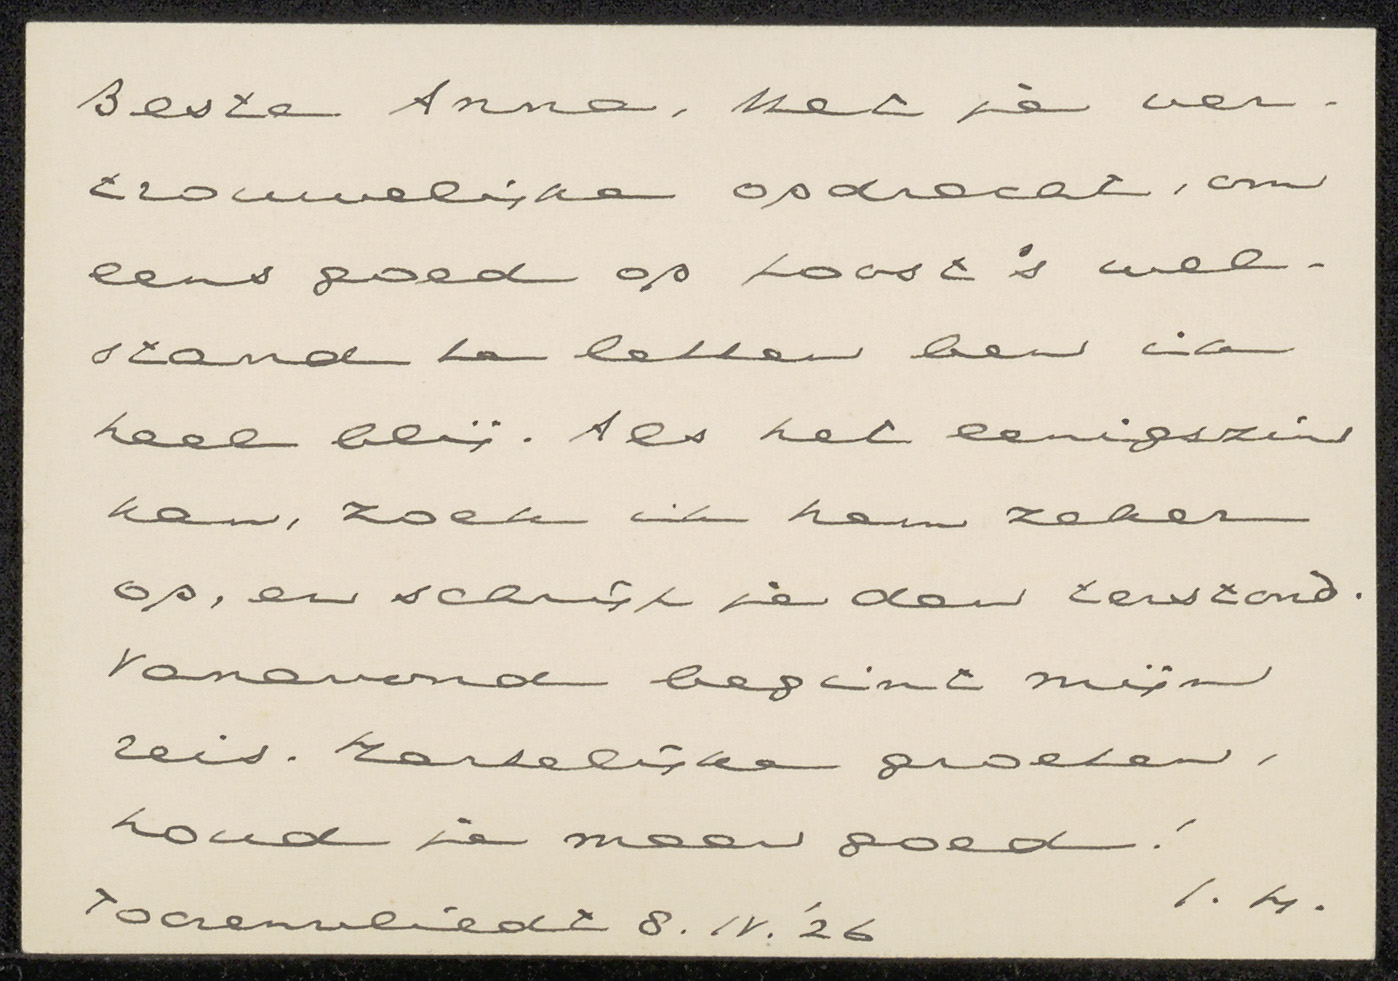 Beste Anna, Met je ver-
trouwelijke opdracht, om
eens goed op Joost's wel-
stand te letten ben ik
heel blij. Als het eenigszins
kan, zoek ik hem zeker
op, en schrijf je dan terstond.
Vanavond begint mijn
reis. Hartelijke groeten,
houd je maar goed!
I. H.
Toorenvliedt 8. IV. '26